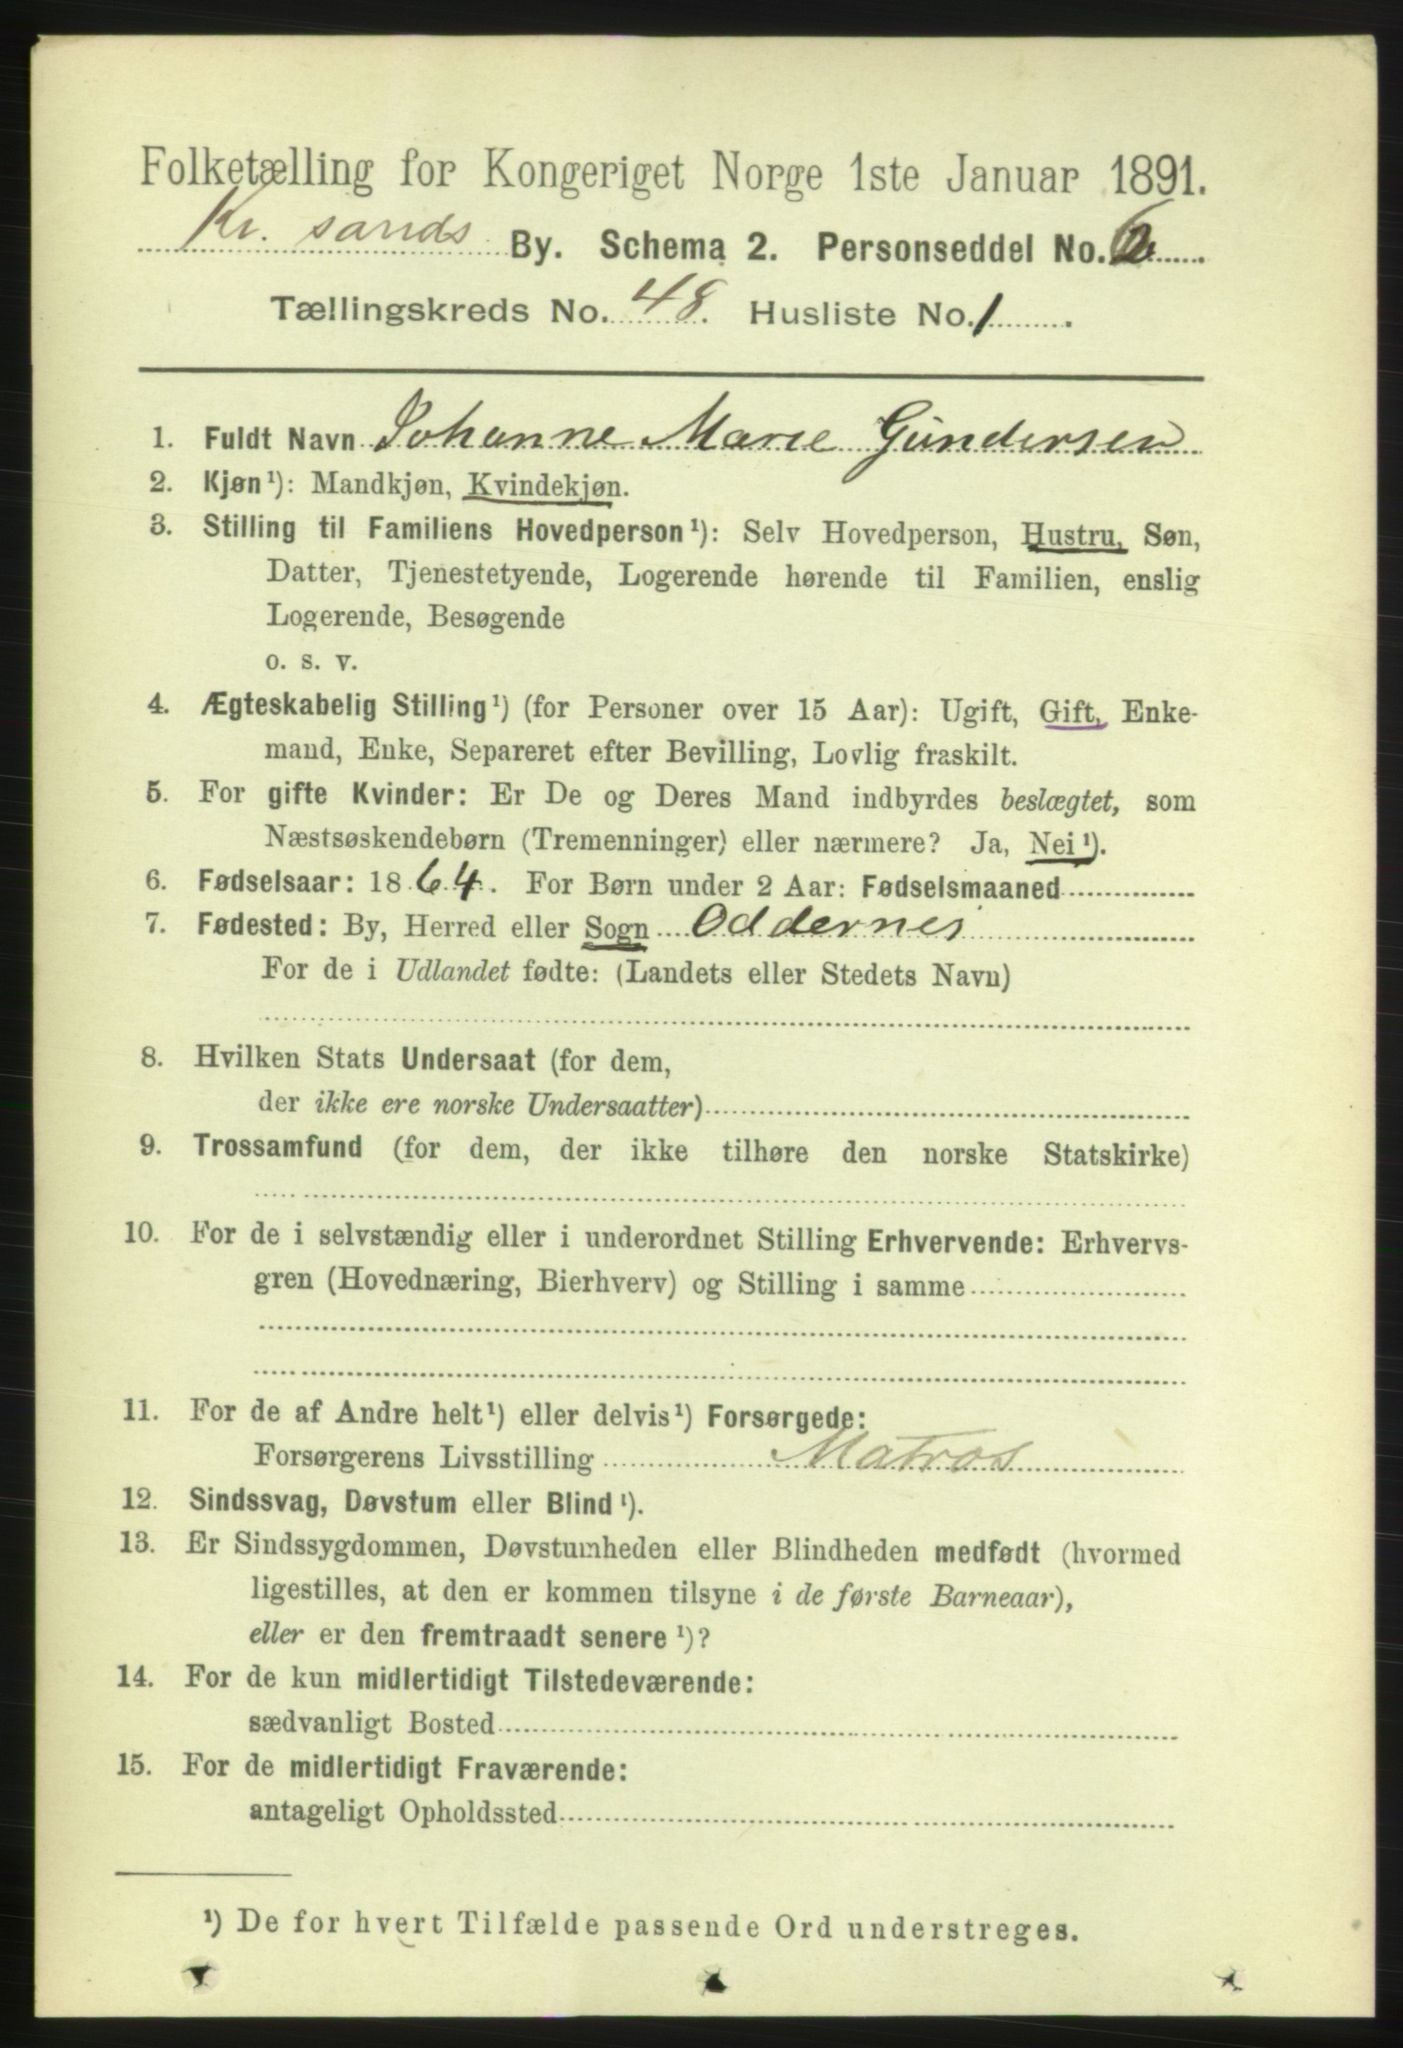 Folketælling for Kongeriget Norge 1ste Januar 1891.
Kr. sands By. Schema 2. Personseddel No. 2
Tællingskreds No. 48. Husliste No. 1.
1. Fuldt Navn Johanne Marie Gundersen
2. Kjøn¹): Mandkjøn, Kvindekjøn.
3. Stilling til Familiens Hovedperson¹): Selv Hovedperson, Hustru, Søn,
Datter, Tjenestetyende, Logerende hørende til Familien, enslig
Logerende, Besøgende
o. s. v.
4. Ægteskabelig Stilling¹) (for Personer over 15 Aar): Ugift, Gift, Enke-
mand, Enke, Separeret efter Bevilling, Lovlig fraskilt.
5. For gifte Kvinder: Er De og Deres Mand indbyrdes beslægtet, som
Næstsøskendebørn (Tremenninger) eller nærmere? Ja, Nei¹).
6. Fødselsaar: 1864. For Børn under 2 Aar: Fødselsmaaned
7. Fødested: By, Herred eller Sogn Oddernes
For de i Udlandet fødte: (Landets eller Stedets Navn)
8. Hvilken Stats Undersaat (for dem,
der ikke ere norske Undersaatter)
9. Trossamfund (for dem, der ikke tilhøre den norske Statskirke)
10. For de i selvstændig eller i underordnet Stilling Erhvervende: Erhvervs-
gren (Hovednæring, Bierhverv) og Stilling i samme
11. For de af Andre helt¹) eller delvis¹) Forsørgede:
Forsørgerens Livsstilling Matros
12. Sindssvag, Døvstum eller Blind¹).
13. Er Sindssygdommen, Døvstumheden eller Blindheden medfødt (hvormed
ligestilles, at den er kommen tilsyne i de første Barneaar),
eller er den fremtraadt senere¹)?
14. For de kun midlertidigt Tilstedeværende:
sædvanligt Bosted
15. For de midlertidigt Fraværende:
antageligt Opholdssted
¹) De for hvert Tilfælde passende Ord understreges.